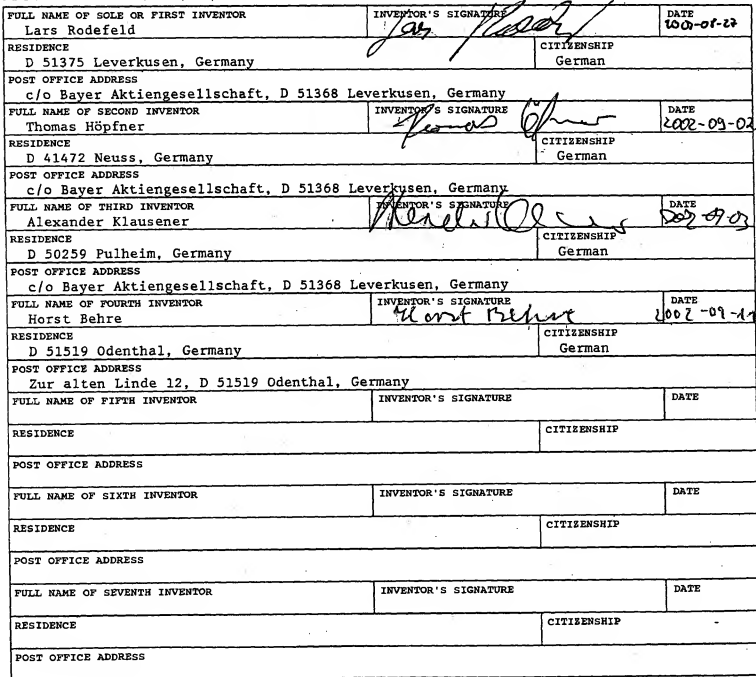 FULL NAME OF SOLE OR FIRST INVENTOR INVENTOR'S SIGNATURE DATE
Lars Rodefeld
RESIDENCE CITIZENSHIP
D 51375 Leverkusen, Germany German
POST OFFICE ADDRESS
c/o Bayer Aktiengesellschaft, D 51368 Leverkusen, Germany
FULL NAME OF SECOND INVENTOR INVENTOR'S SIGNATURE DATE
Thomas Höpfner Thomas 2002-09-02
RESIDENCE CITIZENSHIP
D 41472 Neuss, Germany German
POST OFFICE ADDRESS
c/o Bayer Aktiengesellschaft, D 51368 Leverkusen, Germany
FULL NAME OF THIRD INVENTOR INVENTOR'S SIGNATURE DATE
Alexander Klausener
RESIDENCE CITIZENSHIP
D 50259 Pulheim, Germany German
POST OFFICE ADDRESS
c/o Bayer Aktiengesellschaft, D 51368 Leverkusen, Germany
FULL NAME OF FOURTH INVENTOR INVENTOR'S SIGNATURE DATE
Horst Behre Horst Behre
RESIDENCE CITIZENSHIP
D 51519 Odenthal, Germany German
POST OFFICE ADDRESS
Zur alten Linde 12, D 51519 Odenthal, Germany
FULL NAME OF FIFTH INVENTOR INVENTOR'S SIGNATURE DATE
RESIDENCE CITIZENSHIP
POST OFFICE ADDRESS
FULL NAME OF SIXTH INVENTOR INVENTOR'S SIGNATURE DATE
RESIDENCE CITIZENSHIP
POST OFFICE ADDRESS
FULL NAME OF SEVENTH INVENTOR INVENTOR'S SIGNATURE DATE
RESIDENCE CITIZENSHIP
POST OFFICE ADDRESS